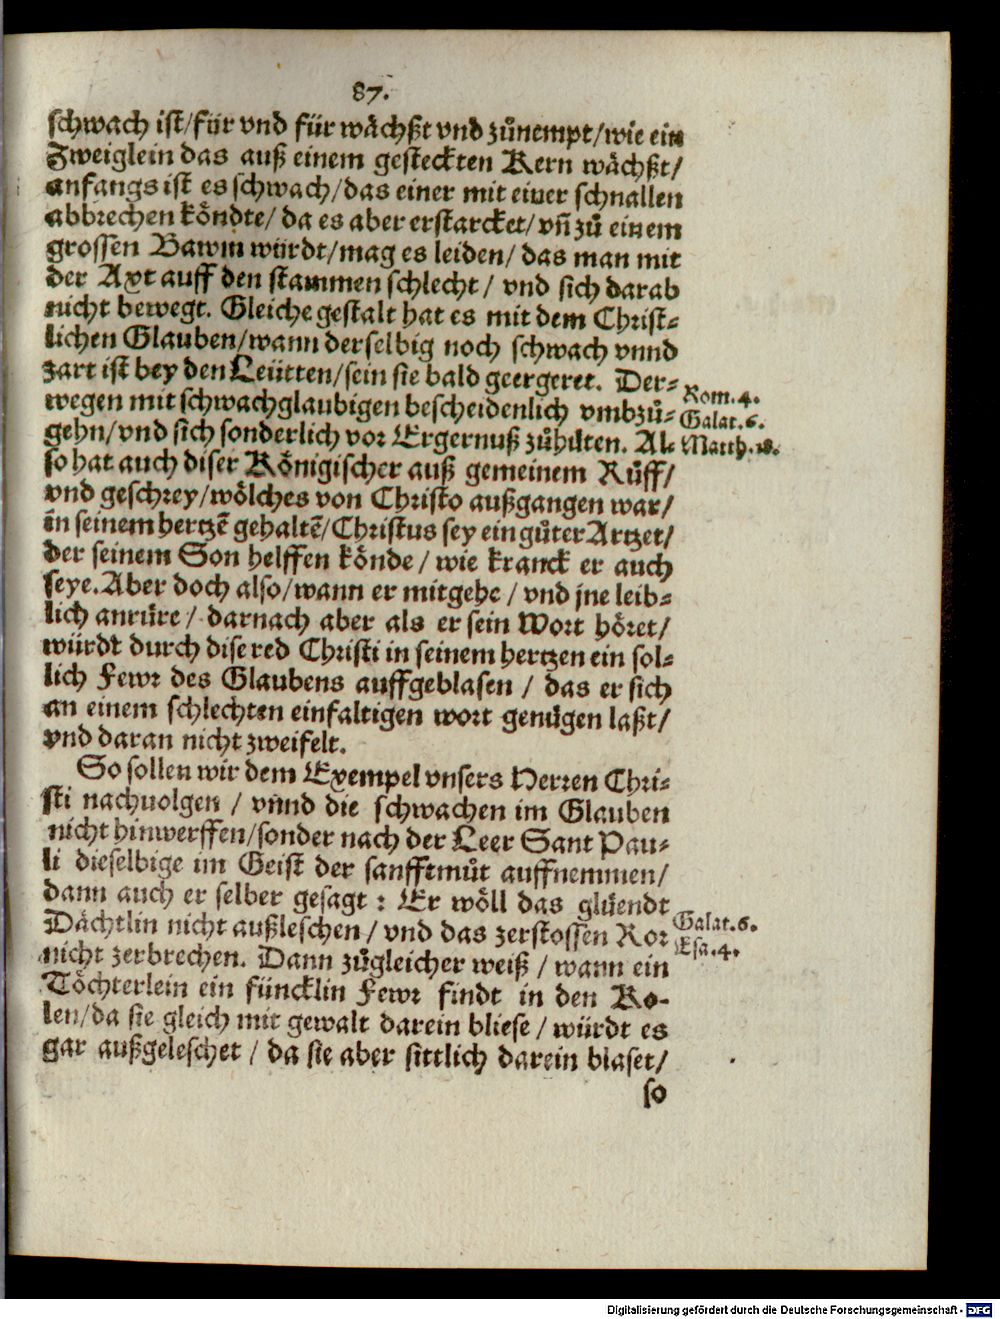 87.
schwach ist/für vnd für wåchßt vnd zůnempt/wie ein
Zweiglein das auß einem gesteckten Kern wåchßt/
anfangs ist es schwach/das einer mit einer schnallen
abbrechen kŏndte/da es aber erstarcket/vñ zů einem
grossen Bawm würdt/mag es leiden/das man mit
der Axt auff den stammen schlecht/vnd sich darab
nicht bewegt. Gleiche gestalt hat es mit dem Christ-
lichen Glauben/wann derselbig noch schwach vnnd
zart ist bey den Leütten/sein sie bald geergeret. Der-
wegen mit schwachglaubigen bescheidenlich vmbzů-
gehn/vnd sich sonderlich vor Ergernuß zůhůten. Al-
so hat auch diser Kŏnigischer auß gemeinem Růff/
vnd geschrey/wŏlches von Christo außgangen war/
in seinem hertzẽ gehaltẽ/Christus sey ein gůter Artzet/
der seinem Son helffen kŏnde/wie kranck er auch
seye. Aber doch also/wann er mitgehe/vnd jne leib-
lich anrůre/darnach aber als er sein Wort hŏret/
würdt durch dise red Christi in seinem hertzen ein sol-
lich Fewr des Glaubens auffgeblasen/das er sich
an einem schlechten einfaltigen wort genůgen laßt/
vnd daran nicht zweifelt.
So sollen wir dem Exempel vnsers Herren Chri-
sti nachuolgen/vnnd die schwachen im Glauben
nicht hinwerffen/sonder nach der Leer Sant Pau-
li dieselbige im Geist der sanfftmůt auffnemmen/
dann auch er selber gesagt: Er wŏll das glůendt
Dåchtlin nicht außleschen/vnd das zerstossen Ror
nicht zerbrechen. Dann zůgleicher weiß/wann ein
Tŏchterlein ein füncklin Fewr findt in den Ko-
len/da sie gleich mit gewalt darein bliese/würdt es
gar außgeleschet/da sie aber sittlich darein blaset/
so
Rom. 4.
Galat. 6.
Matth. 18.
Galat. 6.
Esa. 4.
Digitalisierung gefördert durch die Deutsche Forschungsgemeinschaft - DFG